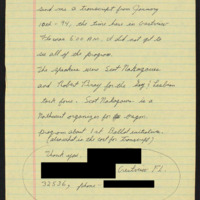 send a transcript from January
10th - 94, the time here in Cantonment
I did not get to
see all of the program.
The speakers were Scot Nakagawa
and Robert Bray for the Gay / Lesbian
task force. Scot Nakagawa is a
National organizer for
program about 1st Ballot initiatives.
(enclosed is the cost for Transcript)
Thank you,
FL.
32536, phone: